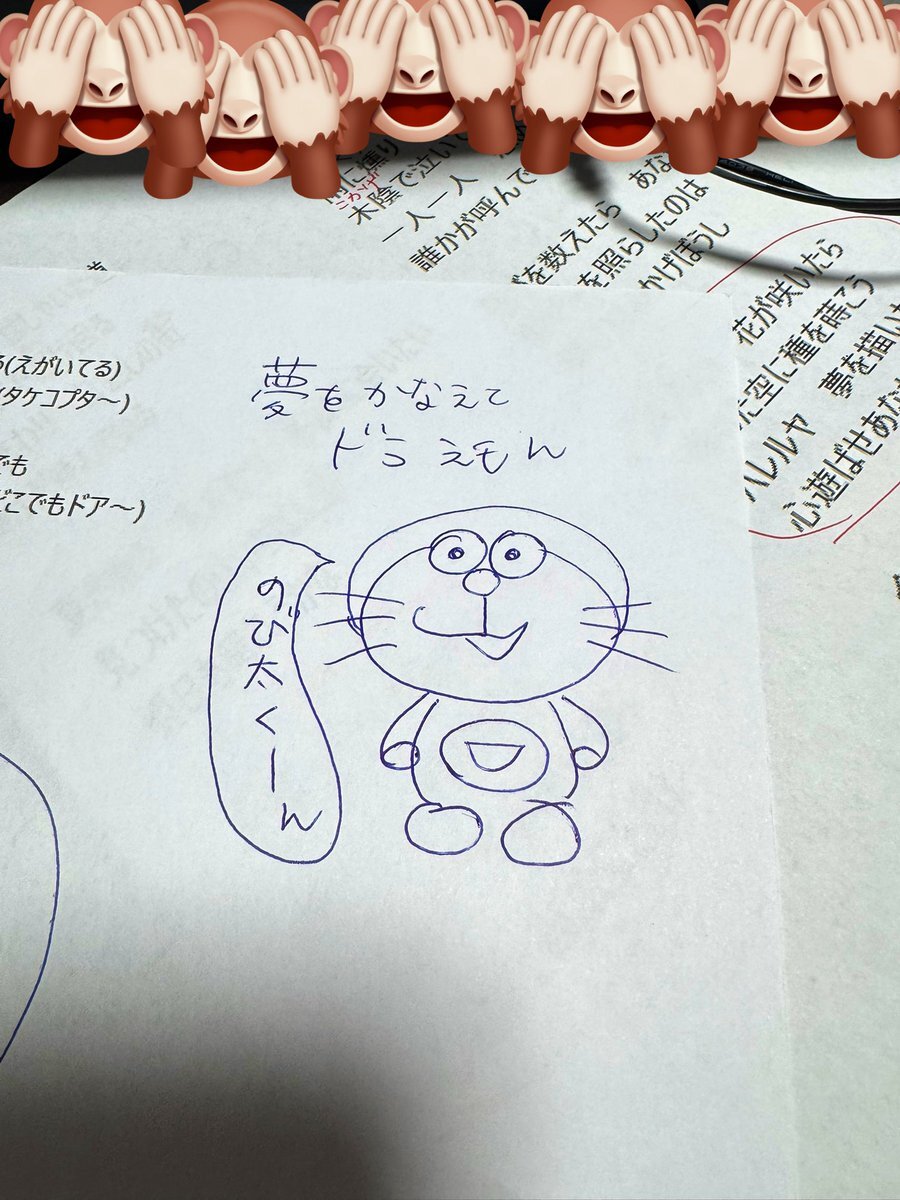 木陰で泣い
こかげ
一人一人
誰かが呼んで
を数えたら あな
を照らしたのは
かげぼうし
花が咲いたら
空に種を蒔こう
ハレルヤ 夢を描い
心遊ばせあな
(えがいてる)
タケコプタ～)
でも
どこでもドア～)
夢をかなえて
ドラえもん
のび太くーん